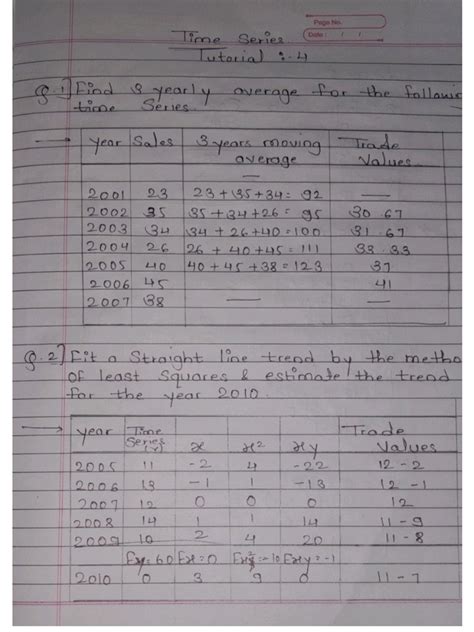 Page No.
Date : / /
Time Series
Tutorial :- 4
Q.1] Find 3 yearly average for the followin
time Series.
→ year Sales 3 years moving average Trade Values
—
2001 23 23+35+34= 92 —
2002 35 35+34+26= 95 30.67
2003 34 34+26+40=100 31.67
2004 26 26+40+45=111 33.33
2005 40 40+45+38=123 37
2006 45 41
2007 38 — —
Q.2] Fit a Straight line trend by the metho
of least Squares & estimate the trend
for the year 2010.
→ year Time Series (Y) x x² xy Trade Values
2005 11 -2 4 -22 12-2
2006 13 -1 1 -13 12-1
2007 12 0 0 0 12
2008 14 1 1 14 11-9
2009 10 2 4 20 11-8
Σy=60 Σx=0 Σx²=10 Σxy=-1
2010 0 3 9 0 11-7